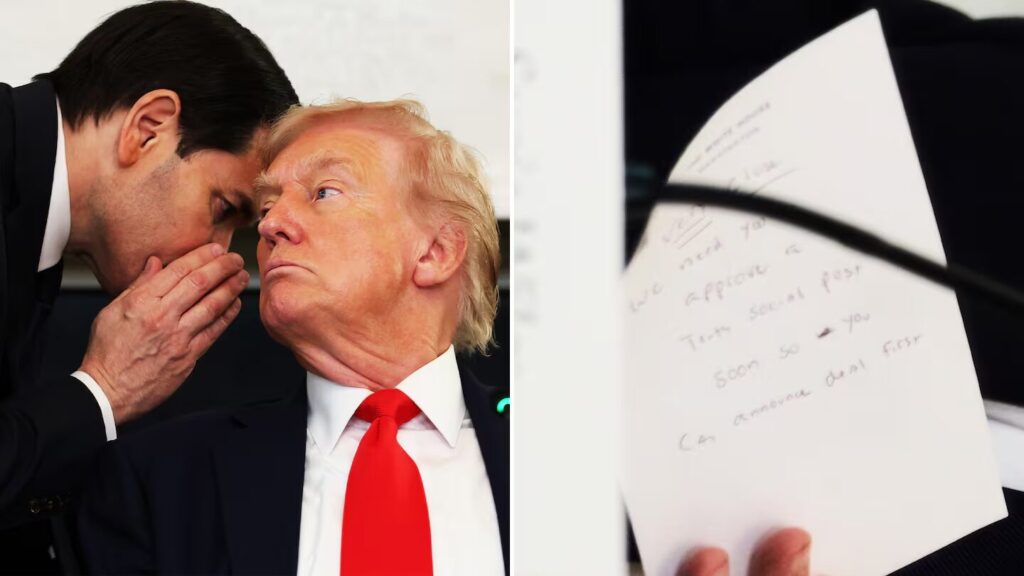 THE WHITE HOUSE
WASHINGTON
Very
We need you
approve a
Truth social post
soon so you
can announce deal first